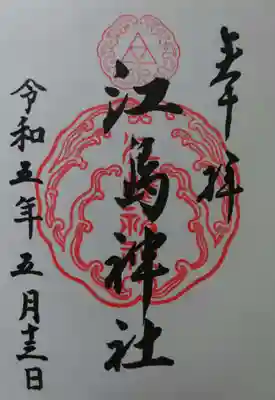 奉拝
江島神社
令和五年五月十三日